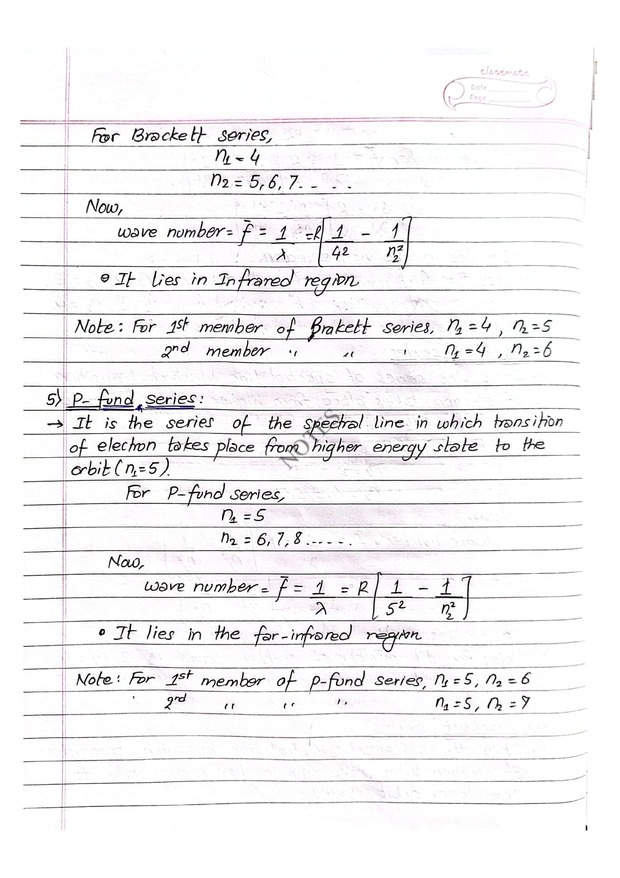 classmate
Date
Page
For Brackett series,
n1 = 4
n2 = 5, 6, 7 - - - -
Now,
wave number = f̄ = 1/λ = R[1/4² - 1/n2²]
It lies in Infrared region
Note: For 1st member of Brakett series, n1 = 4, n2 = 5
2nd member " " " n1 = 4, n2 = 6
5) P-fund series:
→ It is the series of the spectral line in which transition
of electron takes place from higher energy state to the
orbit (n1=5).
NOTES
For P-fund series,
n1 = 5
n2 = 6, 7, 8 ------
Now,
wave number = f̄ = 1/λ = R[1/5² - 1/n2²]
• It lies in the far-infrared region
Note: For 1st member of p-fund series, n1 = 5, n2 = 6
2nd " " " n1 = 5, n2 = 7